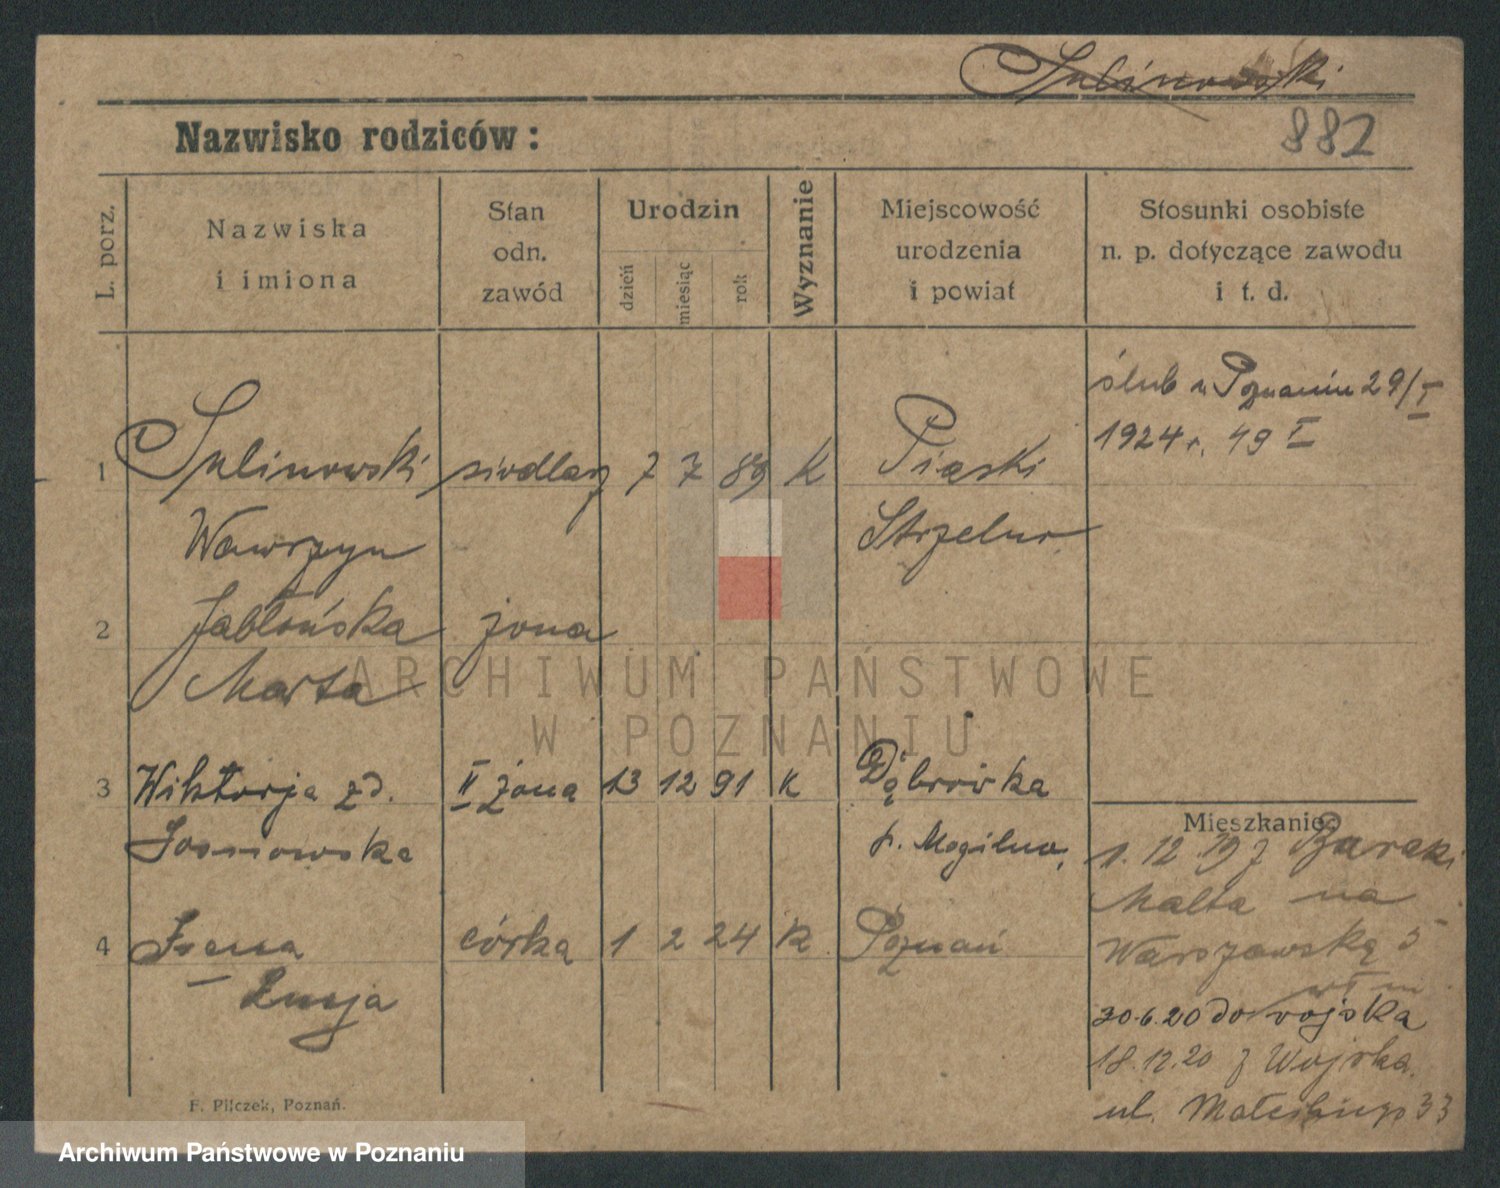 Sulinowski
882
Nazwisko rodziców:
L. porz.
Nazwiska
i imiona
Stan
odn.
zawód
Urodzin
dzień
miesiąc
rok
Wyznanie
Miejscowość
urodzenia
i powiat
Stosunki osobiste
n. p. dotyczące zawodu
i t. d.
ślub w Poznaniu 29/I
1924 r. 49 I
1 Sulinowski siodlarz 7 7 89 K Piaski
Wawrzyn Strzelno
2 Jabłońska żona
Marta
3 Wiktorja zd. II żona 13 12 91 K Dąbrówka
Sosnowska p. Mogilno,
4 Irena córka 1 2 24 K Poznań
Łucja
Mieszkanie:
1. 12. 19 z Baraki
Malta na
Warszawską 5
30.6.20 do wojska
18.12.20 z Wojska.
ul. Małeckiego 33
F. Pilczek, Poznań.
ARCHIWUM PAŃSTWOWE
W POZNANIU
Archiwum Państwowe w Poznaniu